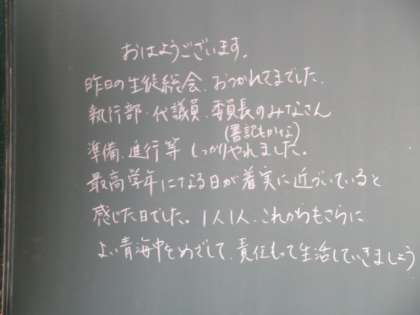 おはようございます。
昨日の生徒総会、おつかれさまでした。
執行部・代議員・委員長のみなさん
(書記もかな)
準備、進行等 しっかりやれました。
最高学年になる日が着実に近づいていると
感じた日でした。1人1人、これからもさらに
よい青海中をめざして、責任もって生活していきましょう